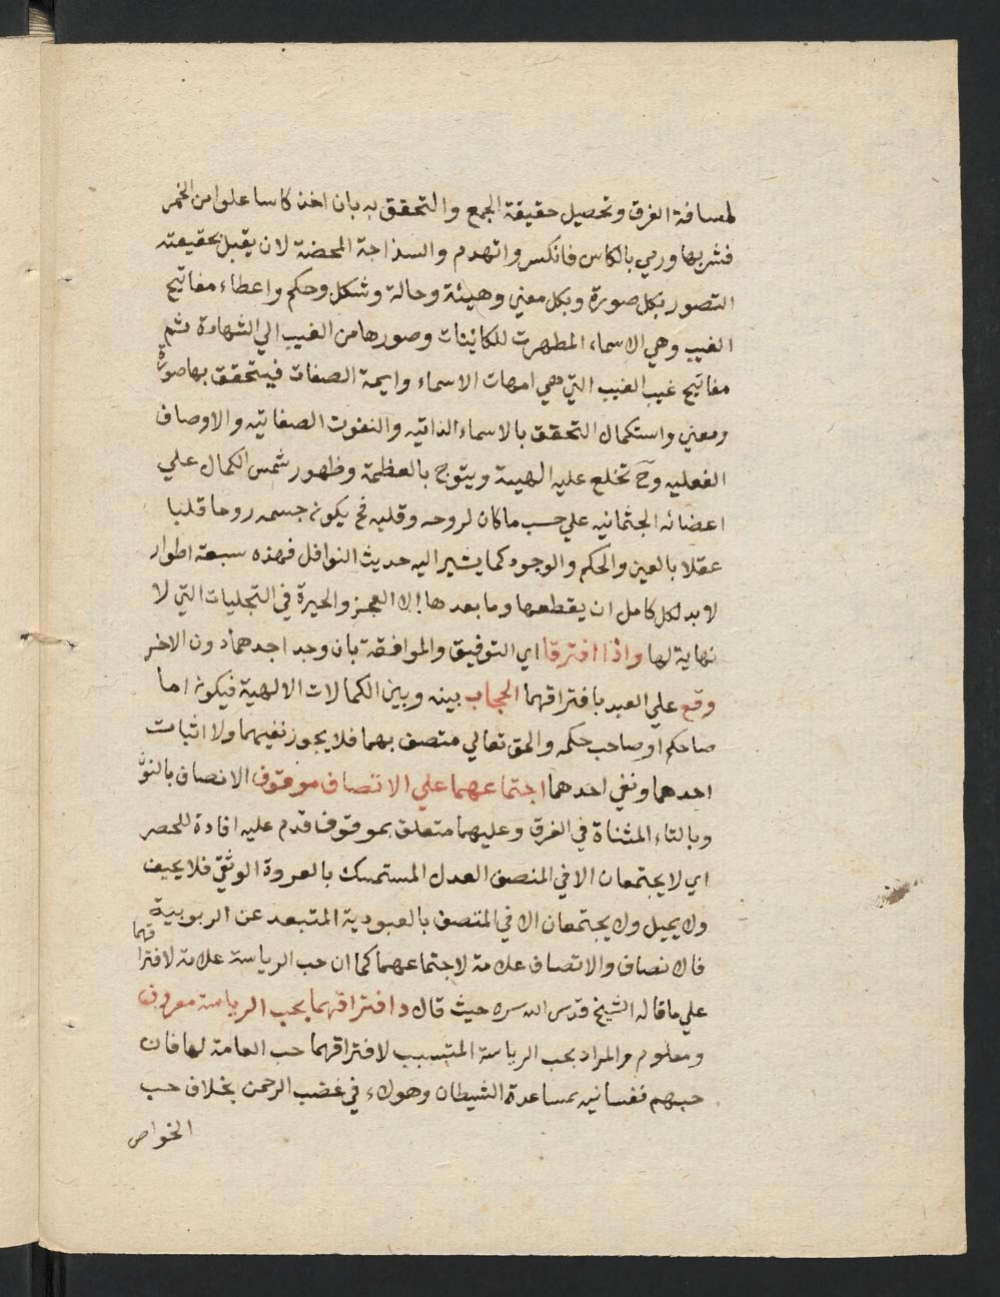 لمسافة الفرق وتحصيل حقيقة الجمع والتحقق به بان اخذ كاسا علوا من الخمر
فشربها ورمي بالكاس فانكسر وانهدم والسذاجة المحضة لان يقبل بحقيقته
التصور بكل صورة وبكل معني وهيئة وحالة وشكل وحكم واعطاء مفاتيح
الغيب وهي الاسماء المطهرت للكائنات وصورها من الغيب الي الشهادة ثم
مفاتيح غيب الغيب التي هي امهات الاسماء وايمة الصفات فيتحقق بها صورة
ومعني واستكمال التحقق بالاسماء الذاتيه والنعوت الصفاتيه والاوصاف
الفعليه وح تخلع عليه الهيبة ويتوج بالعظمة وظهور شمس الكمال علي
اعضائه الجثمانيه علي حسب ما كان لروحه وقلبه فح يكون جسمه روحا قلبا
عقلا بالعين والحكم والوجود كما يشير اليه حديث النوافل فهذه سبعة اطوار
لا بد لكل كامل ان يقطعها وما بعدها الا العجز والحيرة في التجليات التي لا
نهاية لها واذا افترقا اي التوفيق والموافقة بان وجد احدهما دون الاخر
وقع علي العبد بافتراقهما الحجاب بينه وبين الكمالات الالهية فيكون اما
صاحكم او صاحب حكمه والحق تعالي متصف بهما فلا يجوز نفيهما ولا اثبات
احدهما ونفي احدهما اجتماعهما علي الاتصاف موقوف الانصاف بالنون
وبالتاء المثناة في الفرق وعليهما متعلق بموقوف قدم عليه افادة للحصر
اي لا يجتمعان الا في المنصف العدل المستمسك بالعروة الوثقي فلا يحيف
ولا يميل ولا يجتمعان الا في المتصف بالعبودية المتبعد عن الربوبية
فالانصاف والاتصاف علامة لاجتماعهما كما ان حب الرياسة علامة لافتراقهما
علي ما قاله الشيخ قدس الله سره حيث قال وافتراقهما بحب الرياسة معروف
ومعلوم والمراد بحب الرياسة المتسبب لافتراقهما حب العامة لها فان
حبهم نفسانيه بمساعدة الشيطان وهولاء في غضب الرحمن بخلاف حب
الخواص